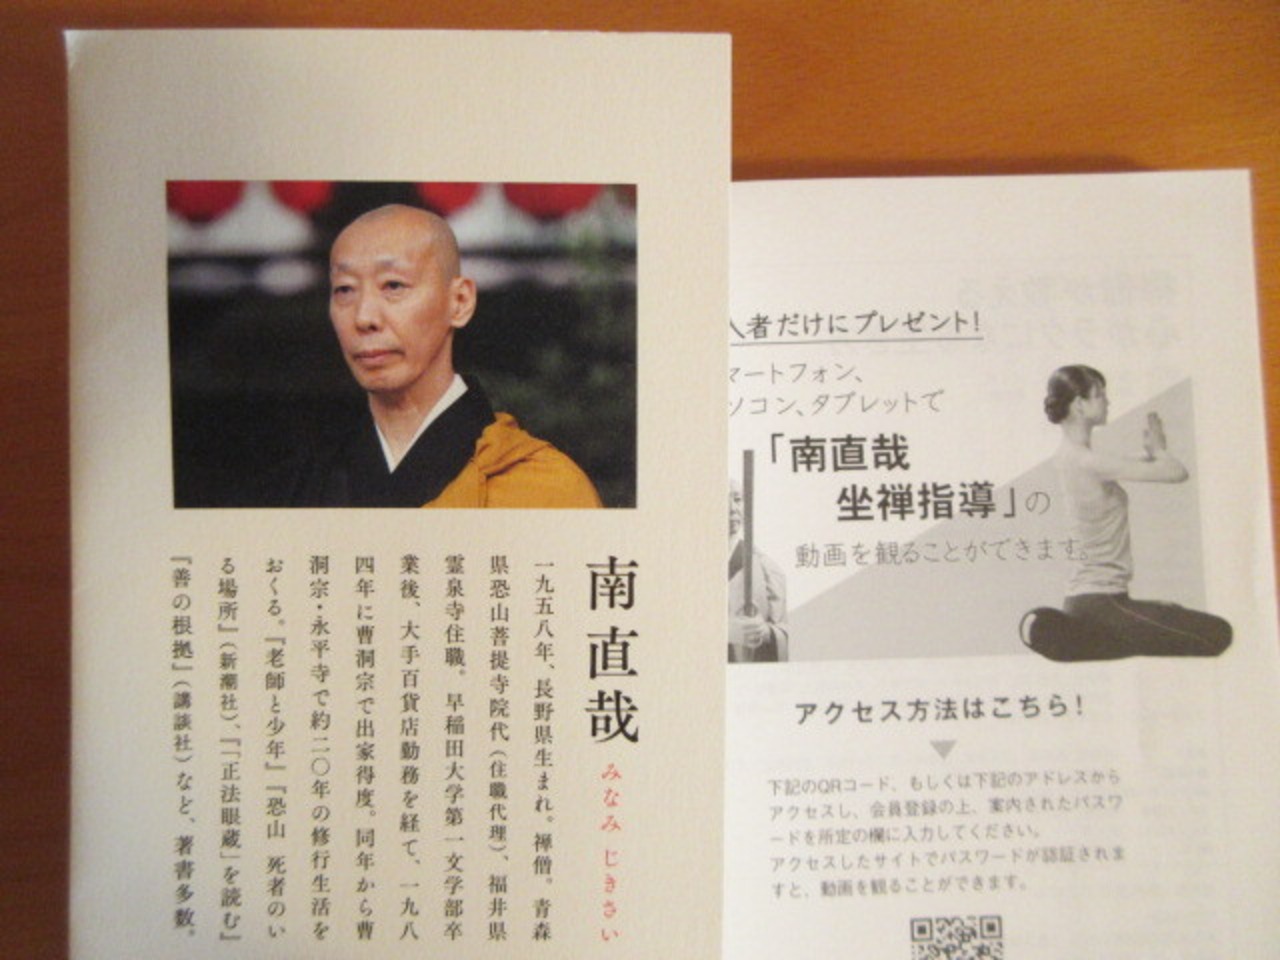 南直哉 みなみ じきさい
一九五八年、長野県生まれ。禅僧。青森
県恐山菩提寺院代（住職代理）、福井県
霊泉寺住職。早稲田大学第一文学部卒
業後、大手百貨店勤務を経て、一九八
四年に曹洞宗で出家得度。同年から曹
洞宗・永平寺で約二〇年の修行生活を
おくる。『老師と少年』『恐山 死者のい
る場所』（新潮社）、『「正法眼蔵」を読む』
『善の根拠』（講談社）など、著書多数。
入者だけにプレゼント！
マートフォン、
ソコン、タブレットで
「南直哉
坐禅指導」の
動画を観ることができます。
アクセス方法はこちら！
下記のQRコード、もしくは下記のアドレスから
アクセスし、会員登録の上、案内されたパスワ
ードを所定の欄に入力してください。
アクセスしたサイトでパスワードが認証されま
すと、動画を観ることができます。